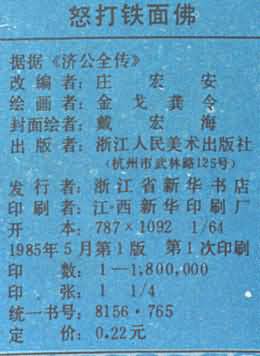 怒打铁面佛
据据《济公全传》
改编者：庄宏安
绘画者：金戈龚令
封面绘者：戴宏海
出版者：浙江人民美术出版社
（杭州市武林路125号）
发行者：浙江省新华书店
印刷者：江西新华印刷厂
开本：787×1092 1/64
1985年5月第1版 第1次印刷
印数：1—1,800,000
印张：1 1/4
统一书号：8156·765
定价：0.22元